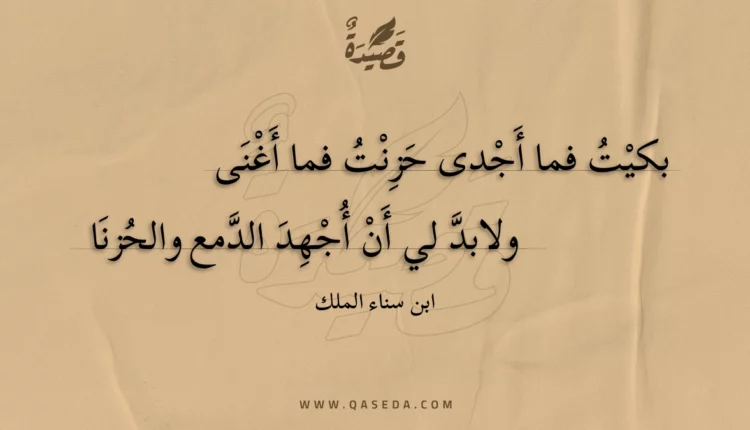 قَصِيْدَةٌ
بكيْتُ فما أَجْدى حَزِنْتُ فما أَغْنَى
ولابدَّ لي أَنْ أُجْهِدَ الدَّمع والحُزنَا
ابن سناء الملك
WWW.QASEDA.COM